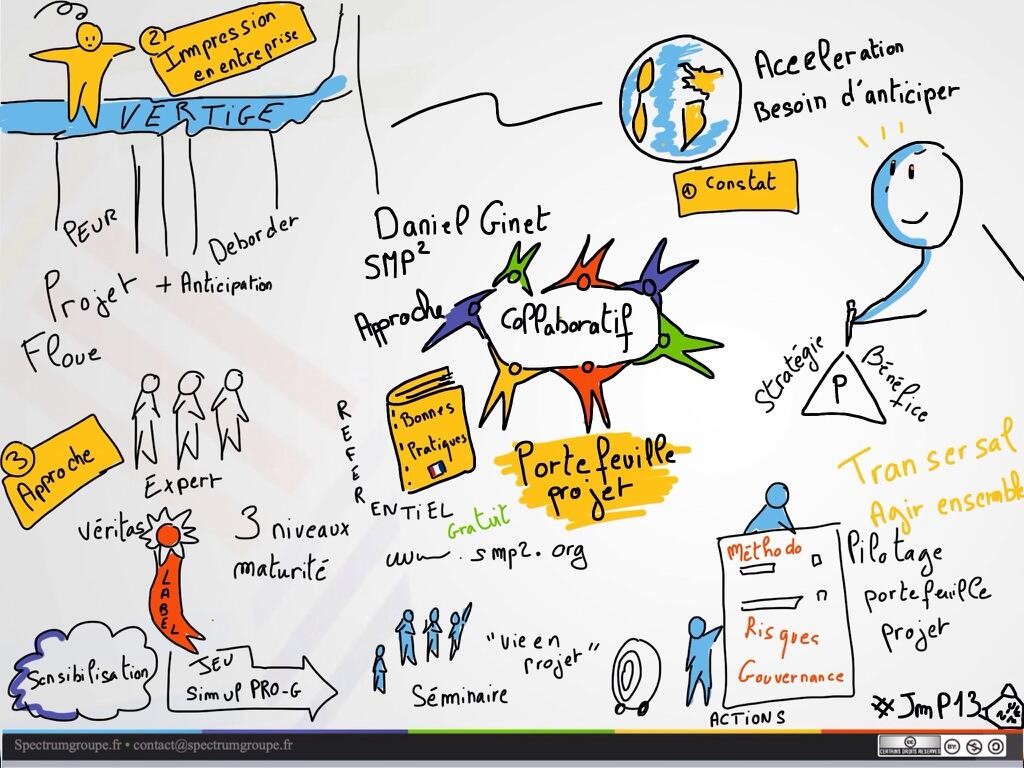 2
Impression
en entreprise
VERTIGE
PEUR
Deborder
Projet
+ Anticipation
Floue
Acceleration
Besoin d'anticiper
1 Constat
Daniel Ginet
SMP²
Approche
Collaboratif
Stratégie
P
Bénéfice
3
Approche
Expert
REFER
ENTIEL
Bonnes
Pratiques
Portefeuille
projet
Transersal
Agir ensemble
Véritas
LABEL
3 niveaux
maturité
Gratuit
www.smp2.org
Méthodo
Risques
Gouvernance
ACTIONS
Pilotage
portefeuille
projet
Sensibilisation
JEU
Simul PRO-G
Séminaire
"vie en
projet"
#JmP13
Spectrumgroupe.fr • contact@spectrumgroupe.fr
cc
CERTAINS DROITS RESERVES
BY: